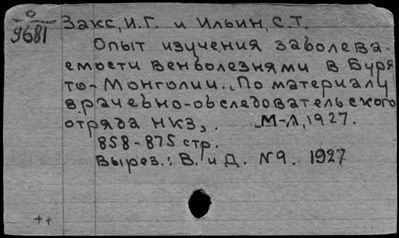 О
9681
Закс, И.Г. и Ильин, С.Т.
Опыт изучения заболева-
емости венболезнями в Буря
то-Монголии. По материалу
врачебно-обследовательского
отряда НКЗ,. М-Л, 1927.
858-875 стр.
Вырез.: В. и Д. N9. 1927
++